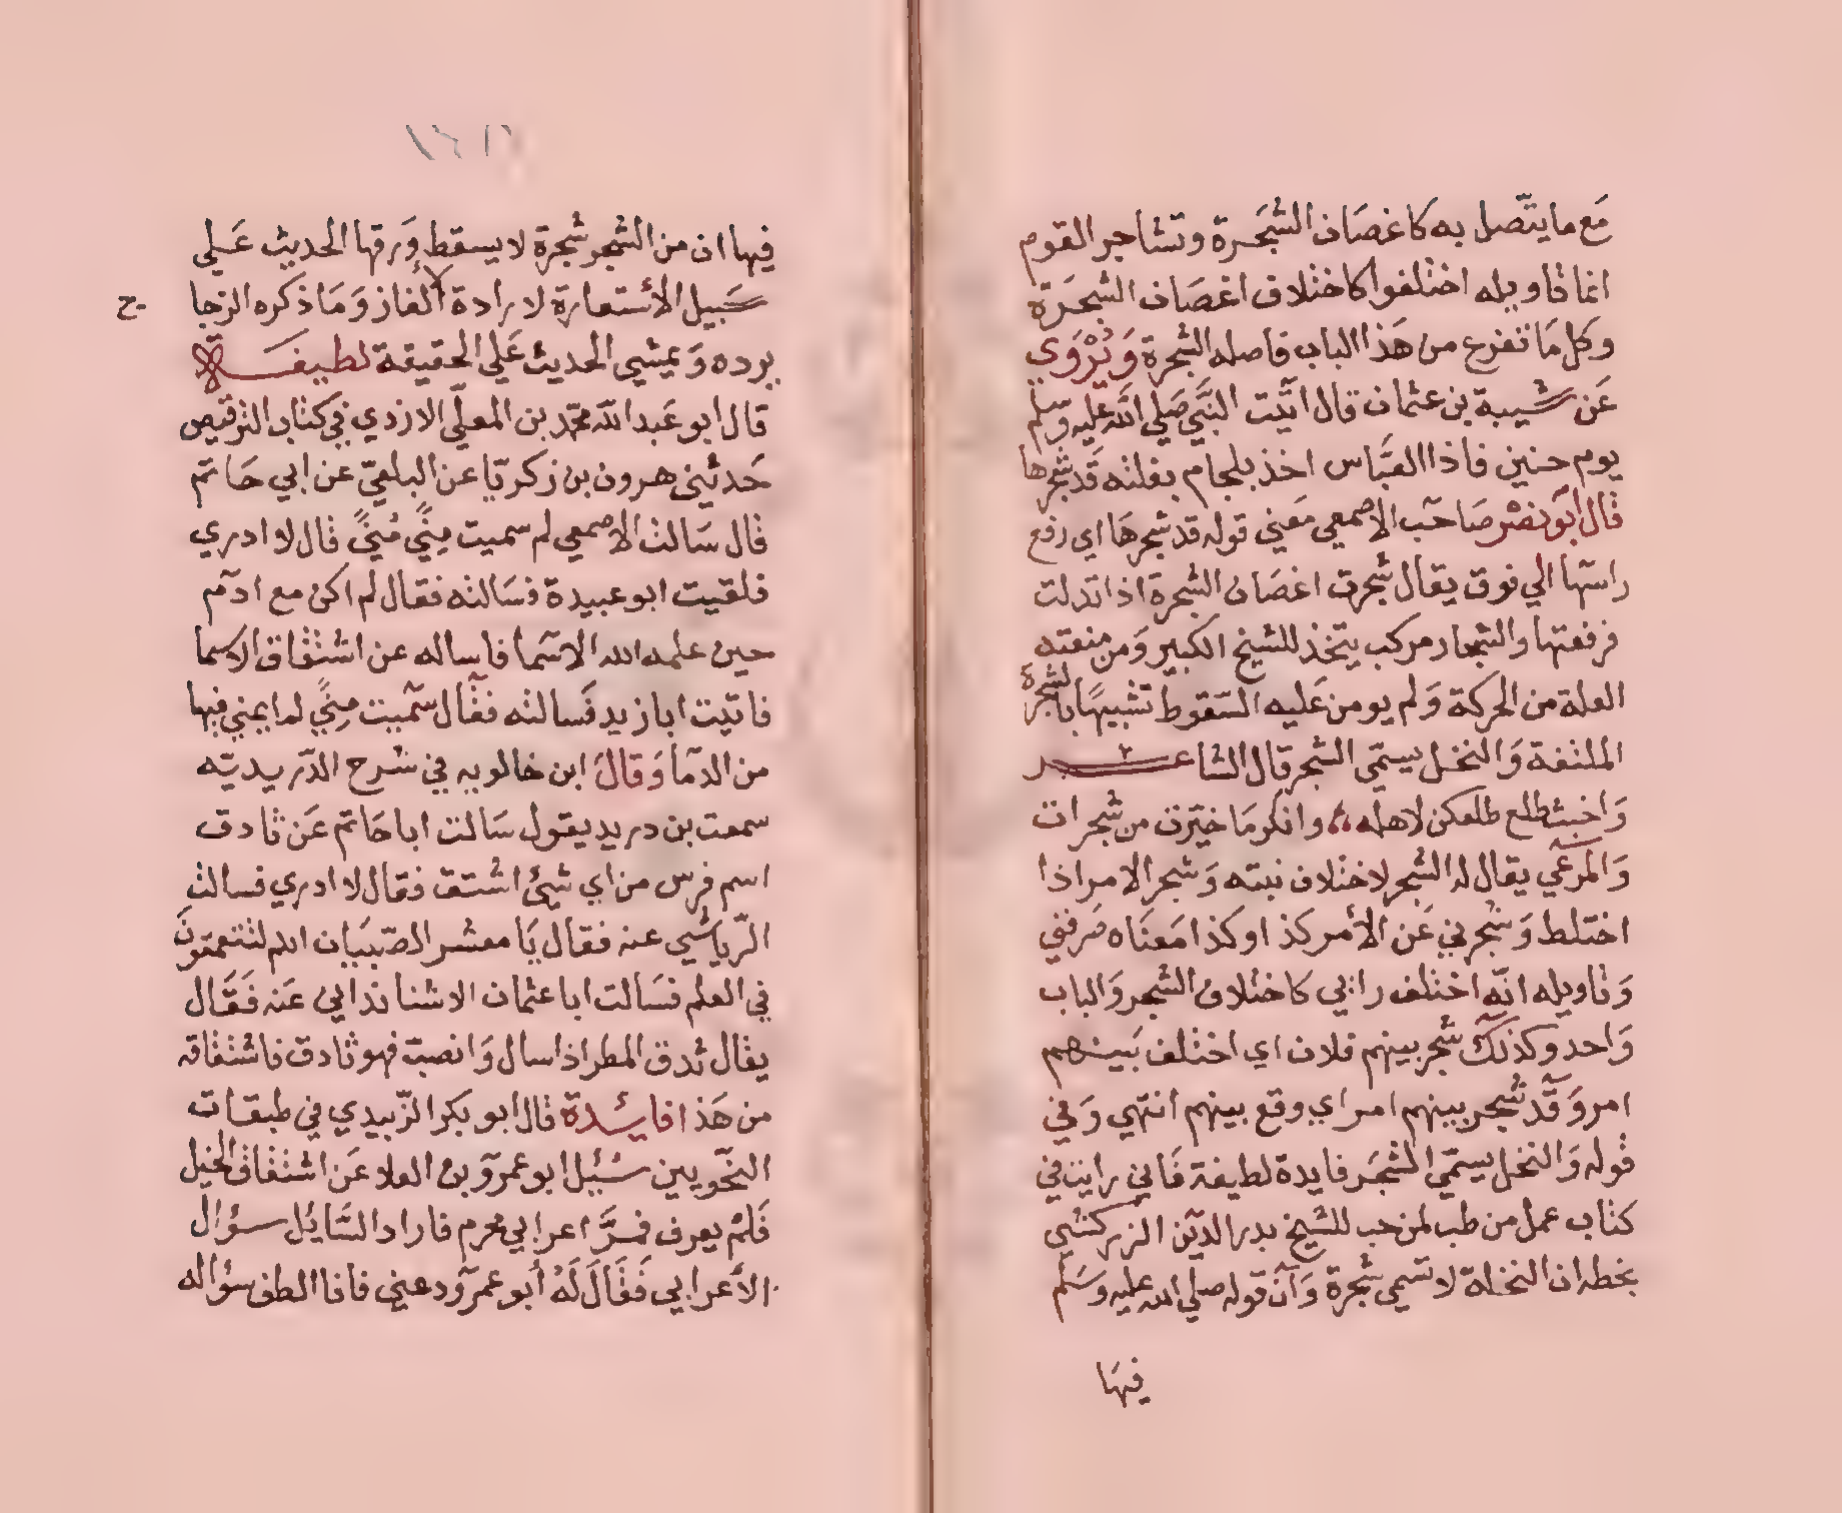 مَع ما يتّصل به كاغصَان الشجَرة وتشاجر القوم
انما تاويله اختلفوا كاختلاف اغصَان الشجَرة
وكل مَا تفرع من هَذا الباب فاصله الشجرة وَيُرْوَي
عَن شيبة بن عثمان قال اتيت النبَّي صَلي الله عليه وسلم
يوم حنين فاذا العبَّاس اخذ بلجام بغلته قَد شجرها
قال ابو نصْر صَاحب الاصمعي مَعني قوله قد شجرهَا اي رفع
راسَها الي فوق يقال شجرت اغصَان الشجرة اذا تدلت
فرفعتها والشجار مركب يتخذ للشيخ الكبير وَمن منعته
العلة من الحركة وَلم يومن عَليه السّقوط تشبيهًا بالشجرة
الملتفة وَالنخل يسمّي الشجر قال الشاعر
وَاخبث طلع طلعكن لاهله وانكر مَا خيّرت من شجرات
وَالمرعَي يقال له الشجر لاختلاف نبته وَشجر الامر اذا
اختلط وَشجرني عَن الأمر كذا وكذا مَعنَاه صَرفني
وَتاويله انّه اختلف رايي كاختلاف الشجر وَالباب
وَاحد وكذلك شجر بينهم فلان اي اختلف بَينهم
امر وَقد شجر بينهم امر اي وقع بينهم انتهي وَفي
قوله وَالنخل يسمّي الشجَر فايدة لطيفة فَاني رايت في
كتاب عمل من طب لمن حب للشيخ بدر الدّين الزركشي
بخطه ان النخلة لا تسمي شجرة وَأن قوله صلي الله عليه وسَلم
فيهَا
فيها ان من الشجر شجرة لا يسقط وَرقها الحديث عَلي
سَبيل الأستعارة لارادة الألغاز وَمَا ذكره الزجا
ح
يرده وَيمشي الحديث عَلي الحقيقة لطيفَة
قال ابو عَبد الله محمّد بن المعلّي الازدي في كتاب الترقيص
حَدثني هرون بن زكريّا عن البلعيّ عن ابي حَاتم
قال سَالت الاصمعي لم سميت مِنًي مُنيً قال لا ادري
فلقيت ابو عبيدة فسَالته فقال لم اكن مع ادم
حين علمه الله الاسّما فاساله عن اشتقاق الاسما
فاتيت ابا زيد فسَالته فقال سمّيت مِنًي لما يمني فيها
من الدمَا وَقالَ ابن خالويه في شرح الدّريديّه
سمعت بن دريد يقول سَالت ابا حَاتم عَن ثادق
اسم فرس من اي شيئ اشتق فقال لا ادري فسالت
الرّياشي عنه فقال يَا معشر الصّبيَان انكم لتتعمّقونَ
في العلم فسَالت ابا عثمان الاشنانداني عَنه فَقَال
يقال ثدق المطر اذا سال وَانصبّ فهو ثادق فاشتقاقه
من هَذا فايئدة قال ابو بكر الزّبيدي في طبقات
النحويين سُئيل ابو عمرو بن العلا عَن اشتقاق الخيل
فَلَمْ يعرف فمرَّ اعرابي محرم فاراد السَّايُل سؤال
الأعرابي فَقَالَ لَهُ أبو عمرو دعني فانا الطف سؤاله